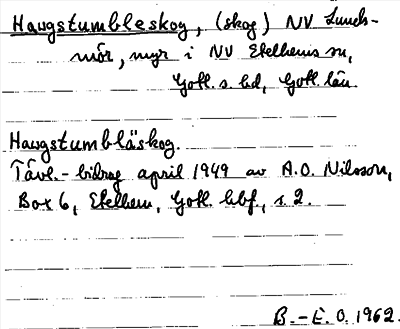 Haugstumbleskog, (skog) NV Lunds-
mör, myr i NV Etelhems sn,
Gotl. s. hd, Gotl. län.
Haugstumbläskog.
Tävl.-bidrag april 1949 av A.O. Nilsson,
Box 6, Etelhem, Gotl. hbf, s. 2.
B.-E. O. 1962.